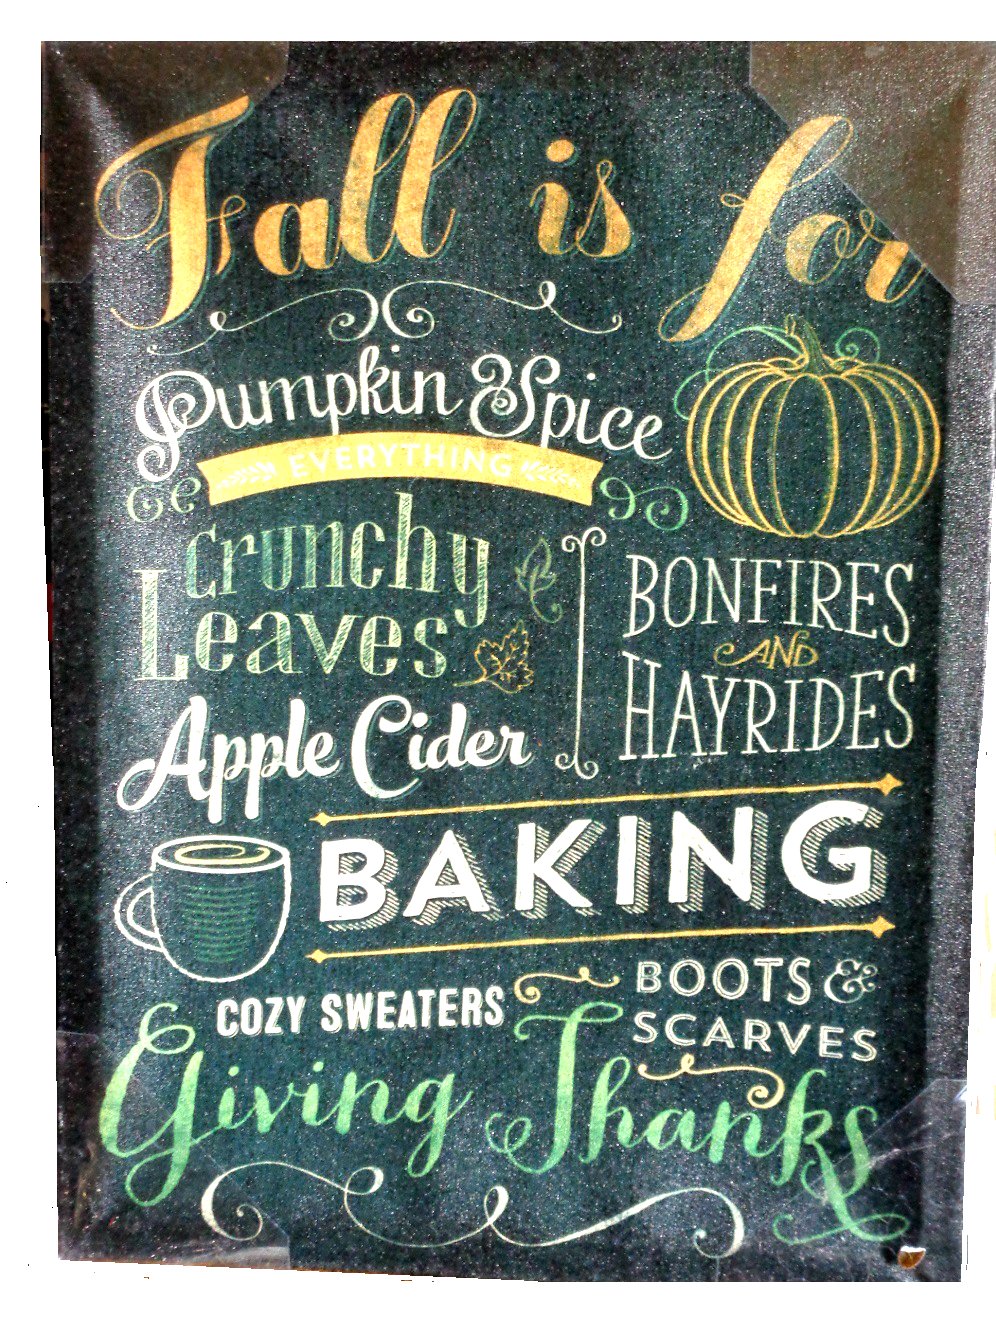 Fall is for
Pumpkin Spice
EVERYTHING
Crunchy
Leaves
BONFIRES
AND
HAYRIDES
Apple Cider
BAKING
COZY SWEATERS
BOOTS &
SCARVES
Giving Thanks